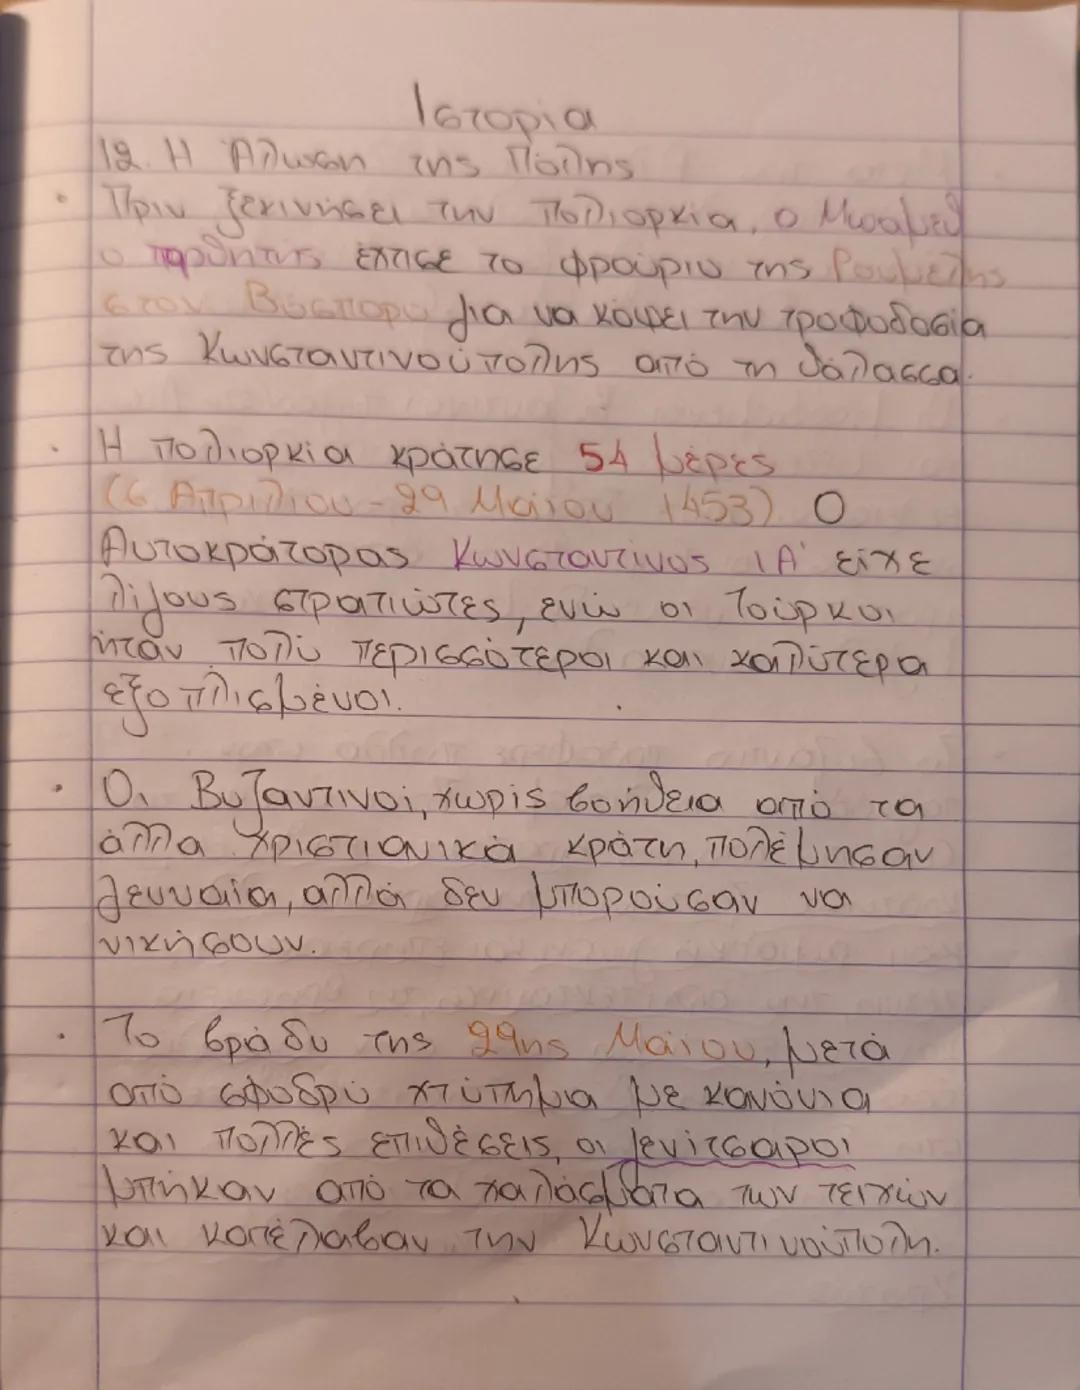 Ιστορία
12. Η Άλωση της Πόλης
• Πριν ξεκινήσει την πολιορκία, ο Μωάμεθ
ο πορθητής έχτισε το φρούριο της Ρούμελης
στον Βόσπορο για να κόψει την τροφοδοσία
της Κωνσταντινούπολης από τη θάλασσα.
• Η πολιορκία κράτησε 54 μέρες
(6 Απριλίου - 29 Μαΐου 1453) Ο
Αυτοκράτορας Κωνσταντίνος ΙΑ' είχε
λίγους στρατιώτες, ενώ οι Τούρκοι
ήταν πολύ περισσότεροι και καλύτερα
εξοπλισμένοι.
• Οι Βυζαντινοί, χωρίς βοήθεια από τα
άλλα χριστιανικά κράτη, πολέμησαν
γενναία, αλλά δεν μπορούσαν να
νικήσουν.
• Το βράδυ της 29ης Μαΐου, μετά
από σφοδρό χτύπημα με κανόνια
και πολλές επιθέσεις, οι γενίτσαροι
μπήκαν από τα χαλάσματα των τειχών
και κατέλαβαν την Κωνσταντινούπολη.